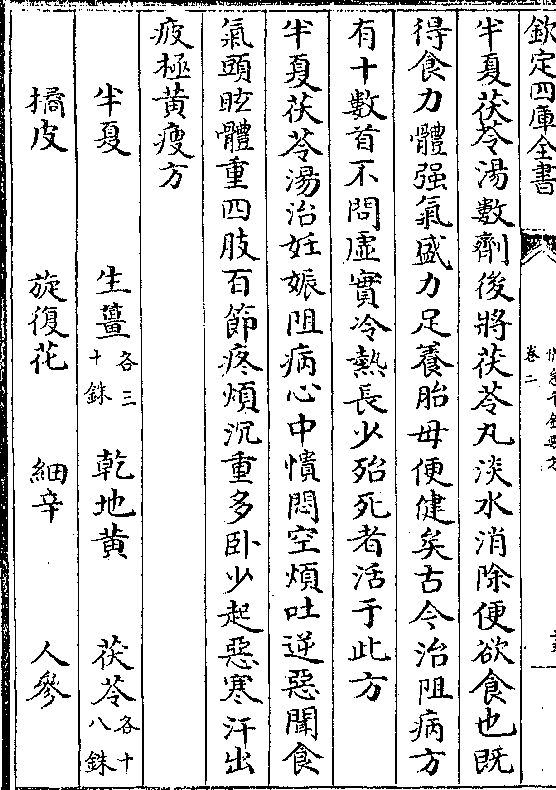 欽定四庫全書
卷二
半夏茯苓湯數劑後將茯苓丸淡水消除便欲食也既
得食力體强氣盛力足養胎母便健矣古今治阻病方
有十數首不問虛實冷熱長少殆死者活于此方
半夏茯苓湯治妊娠阻病心中憒悶空煩吐逆惡聞食
氣頭眩體重四肢百節疼煩沉重多卧少起惡寒汗出
疲極黃瘦方
半夏 生薑各三十銖 乾地黃 茯苓各十八銖
橘皮 旋復花 細辛 人參